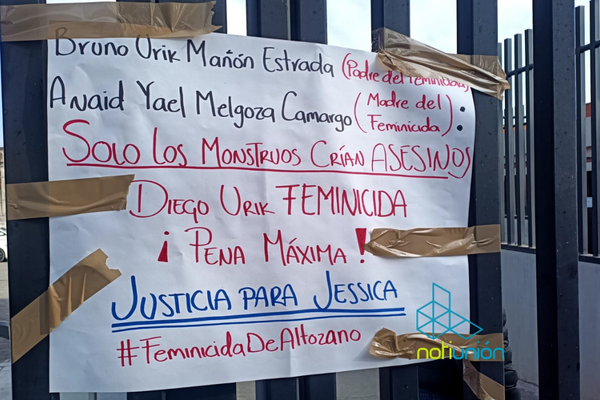 Bruno Urik Mañón Estrada (Padre del Feminicida)
Anaid Yael Melgoza Camargo (Madre del Feminicida) :
SOLO LOS MONSTRUOS CRÍAN ASESINOS
DIEGO URIK FEMINICIDA
¡ PENA MÁXIMA !
JUSTICIA PARA JESSICA
#FeminicidaDeAltozano
notiunión